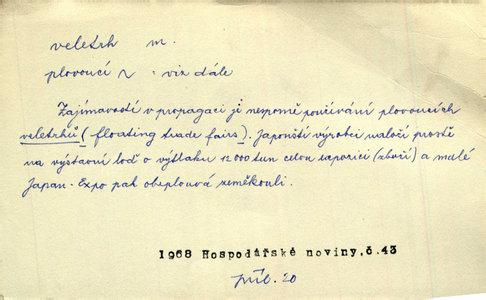 veletrh m.
plovoucí v. viz dále
Zajímavostí v propagaci je nesporně používání plovoucích
veletrhů (floating trade fairs). Japonští výrobci naloží prostě
na výstavní loď o výtlaku 12 000 tun celou expozici (zboží) a malé
Japan-Expo pak obeplouvá zeměkouli.
1968 Hospodářské noviny, č. 43
příl. 20